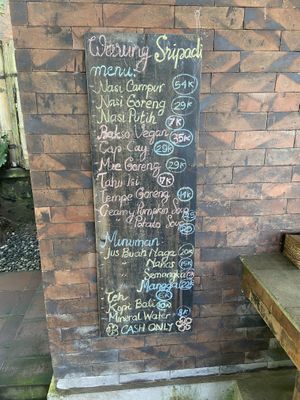 Warung Sripadi
menu:
-Nasi Campur 54K
-Nasi Goreng 29K
-Nasi Putih 7K
-Bakso Vegan 35K
-Cap Cay 29K
-Mie Goreng 29K
-Tahu Isi 17K
-Tempe Goreng
-Creamy Pumpkin Soup
Potato Soup
-Minuman-
-Jus Buah Naga 20K
" Nanas 15K
" Semangka
" Mangga 22K
-Teh
-Kopi Bali
-Mineral Water 8K
CASH ONLY